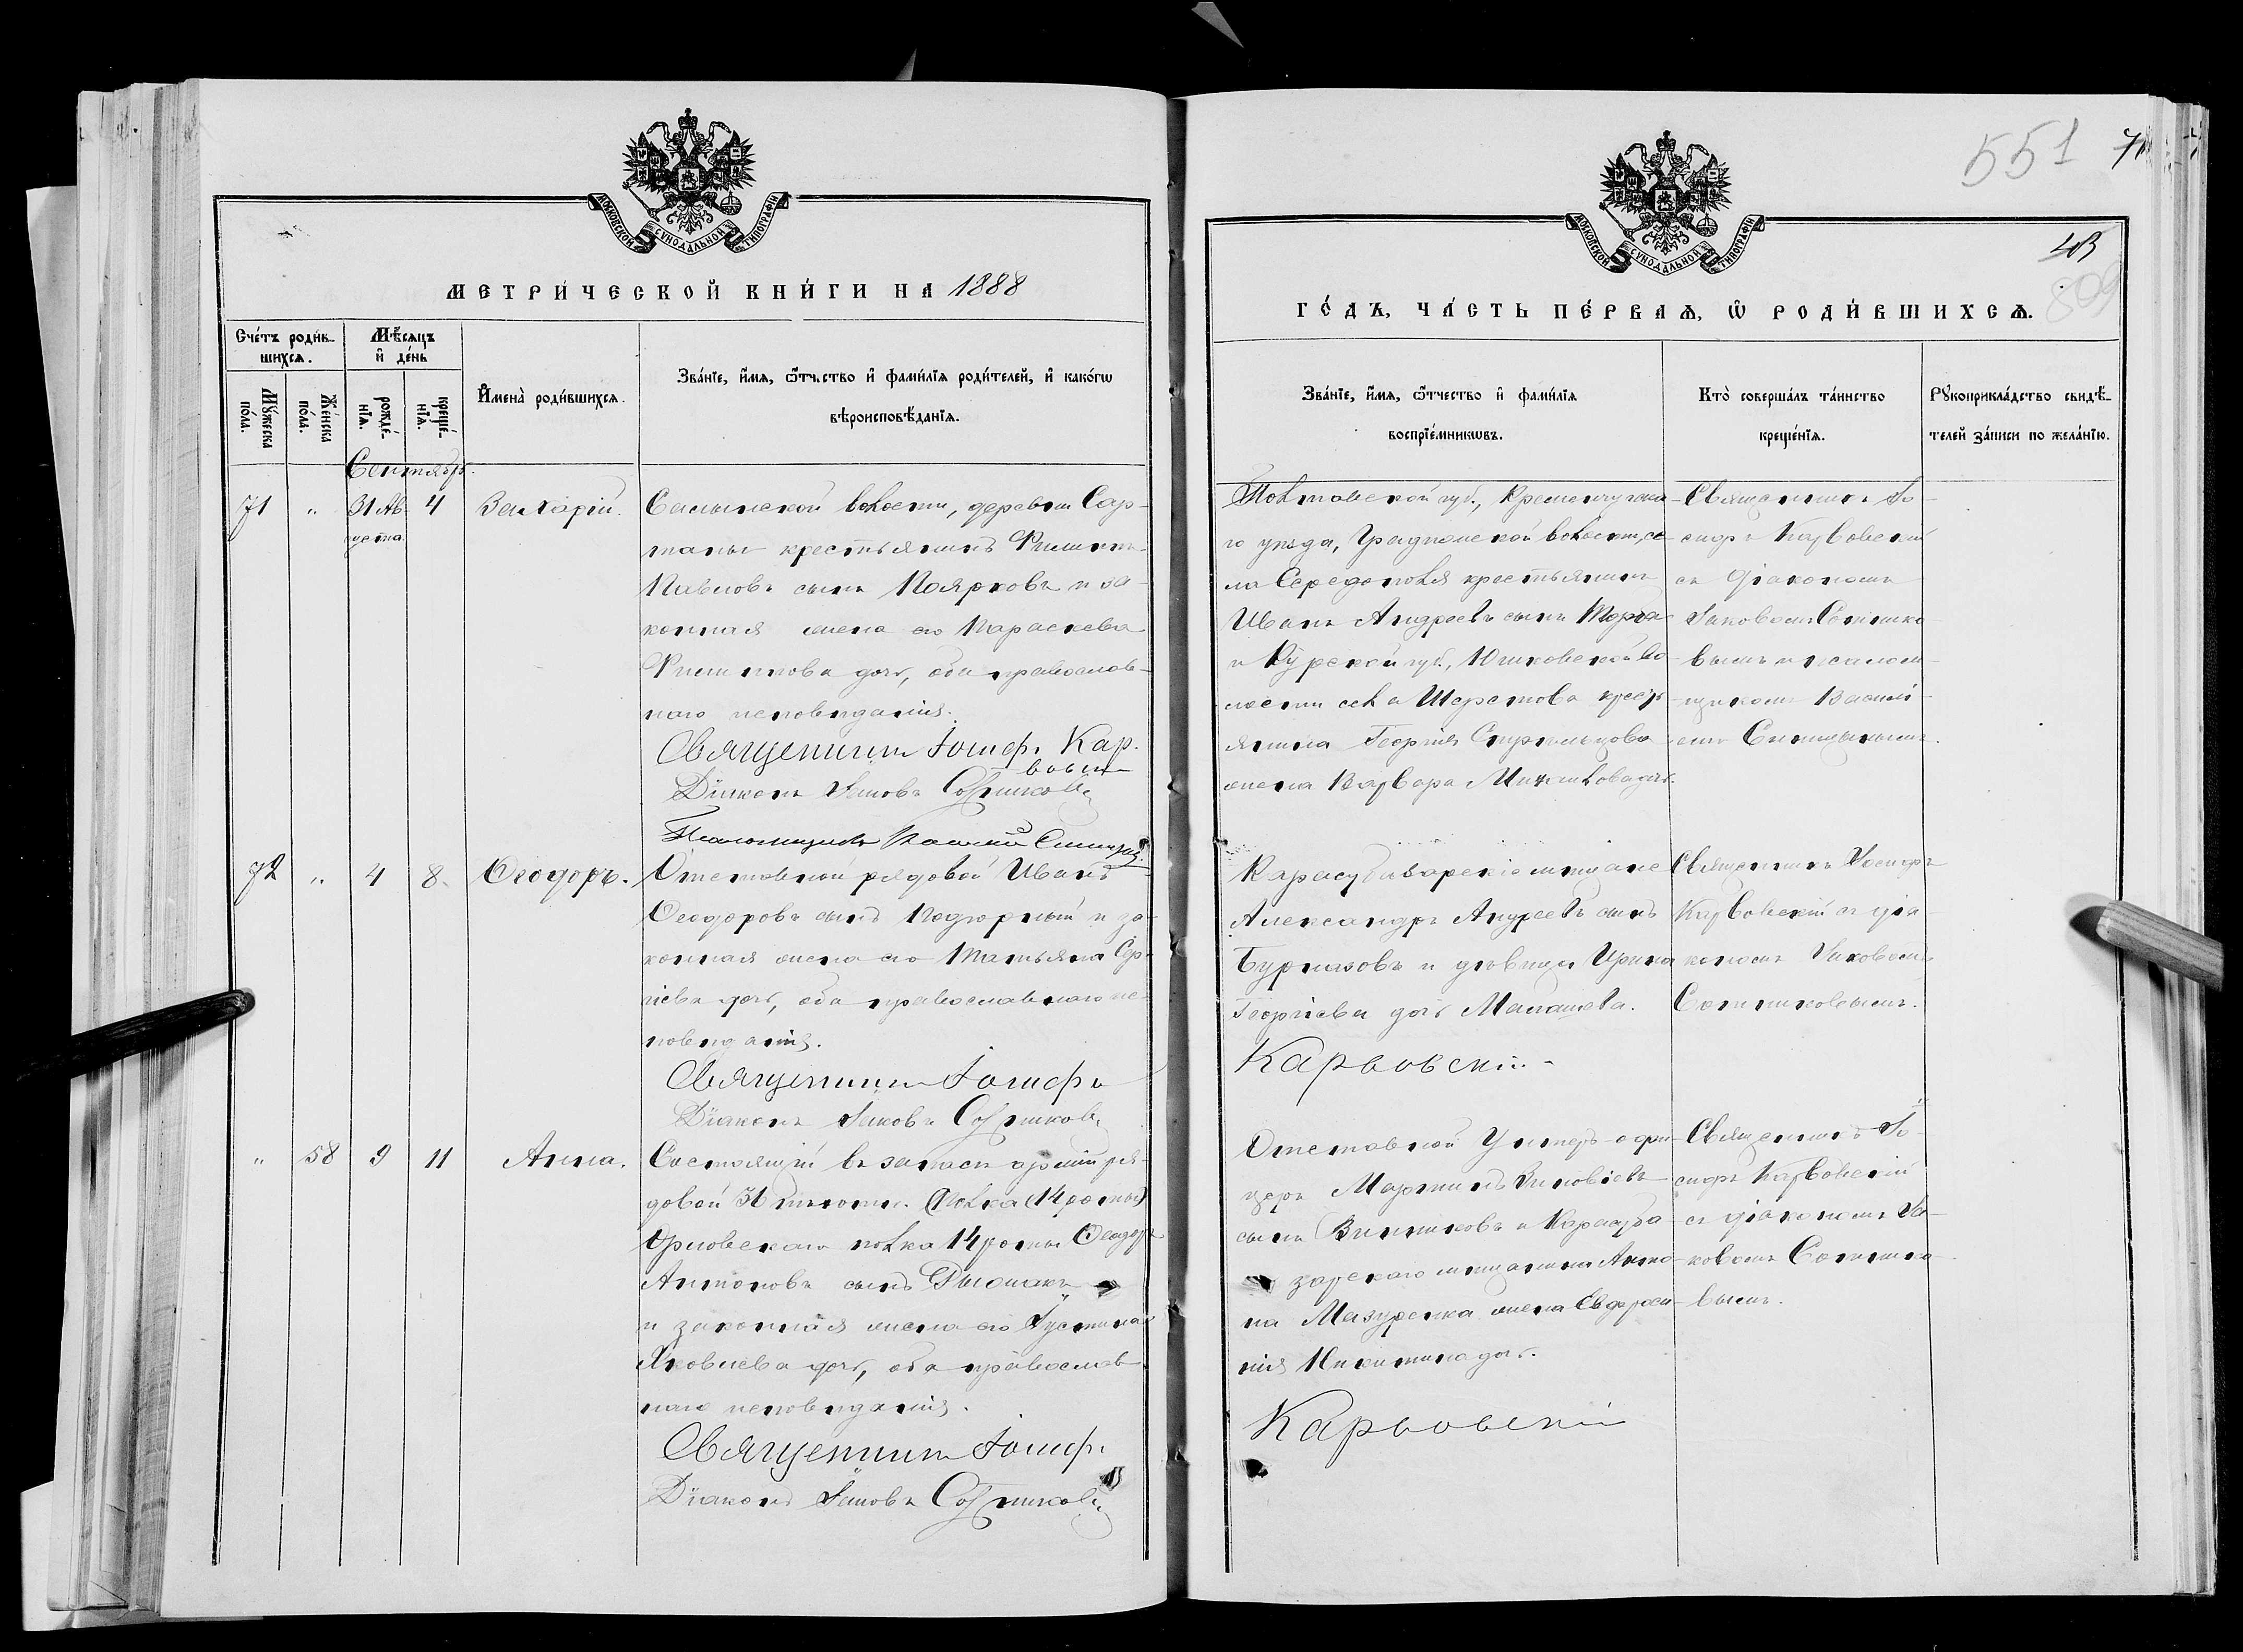 МОСКОВСКОЙ СУНОДАЛЬНОЙ ТИПОГРАФІИ
МЕТРИ́ЧЕСКОЙ КНИ́ГИ НА 1888
Сче́тъ роди́в-
шихсѧ.
Мѣ́сяцъ
и҆ де́нь
Мꙋ́жеска
по́ла.
Же́нска
по́ла.
рожде́-
нїѧ.
креще́-
нїѧ.
И҆мена̀ роди́вшихсѧ.
Зва́нїе, и҆́мѧ, ѻ҆́тчество и҆ фами́лїѧ роди́телей, и҆ како́гѡ
вѣроисповѣ́данїѧ.
Сентябрь.
71 " 31 Ав 4
густа
Салынской волости, деревни Сар-
таны крестьянинъ Филиппъ
Павловъ сынъ Поярковъ и за-
конная жена его Параскева
Филиппова дочь, оба православ-
наго исповѣданія.
Священникъ Іосифъ Кар-
вовск
Діаконъ Іаковъ Сотниковъ
Псаломщикъ Василій Синицы
72 " 4 8 Ѳеодоръ.
Отставной рядовой Иванъ
Ѳеодоровъ сынъ Подгорный и за-
конная жена его Татьяна Сер-
гіева дочь, оба православнаго ис-
повѣданія.
Священникъ Іосифъ
Діаконъ Іаковъ Сотниковъ
" 58 9 11 Анна.
Состоящій въ запасѣ арміи ря-
довой 36 пѣхотн. (полка (14 роты)
Орловскаго полка 14 роты Ѳеодоръ
Антоновъ сынъ
и законная жена его Іустина
Яковлева дочь, оба православ-
наго исповѣданія.
Священникъ Іосифъ
Діаконъ Іаковъ Сотниковъ
551
МОСКОВСКОЙ СУНОДАЛЬНОЙ ТИПОГРАФІИ
809
ГО́ДЪ, ЧА́СТЬ ПЕ́РВАѦ, Ѽ РОДИ́ВШИХСѦ.
Зва́нїе, и҆́мѧ, ѻ҆́тчество и҆ фами́лїѧ
воспрїе́мникѡвъ.
Кто̀ соверша́лъ та́инство
креще́нїѧ.
Рꙋкоприкла́дство свидѣ́-
телей за́писи по жела́нїю.
Полтавской губ., Кременчугска-
го уѣзда, Градижской волости, се-
ла Середополя крестьянинъ
Иванъ Андреевъ сынъ
и Курской губ., Юшковской во-
лости села кресть
янина Георгія Стрѣльцова
жена Варвара Михайлова дочь.
Священникъ Іо-
сифъ Карвовскій
съ діакономъ
Іаковомъ Сотнико-
вымъ и псалом-
щикомъ Василі-
емъ Синицынымъ.
Карасубазарскіе мѣщане
Александръ Андреевъ сынъ
Бурназовъ и дѣвица Ирина
Георгіева дочь Малашева.
Карвовскій
Священникъ Іосифъ
Карвовскій съ діа-
кономъ Іаковомъ
Сотниковымъ.
Отставной Унтеръ-офи-
церъ Мартинъ Зиновіевъ
сынъ Винниковъ и Карасуба-
зарскаго мѣщанина Анто-
на Мазуренка жена Евфроси-
нія Никитина дочь.
Карвовскій
Священникъ Іо-
сифъ Карвовскій
съ діакономъ Іа-
ковомъ Сотнико-
вымъ.